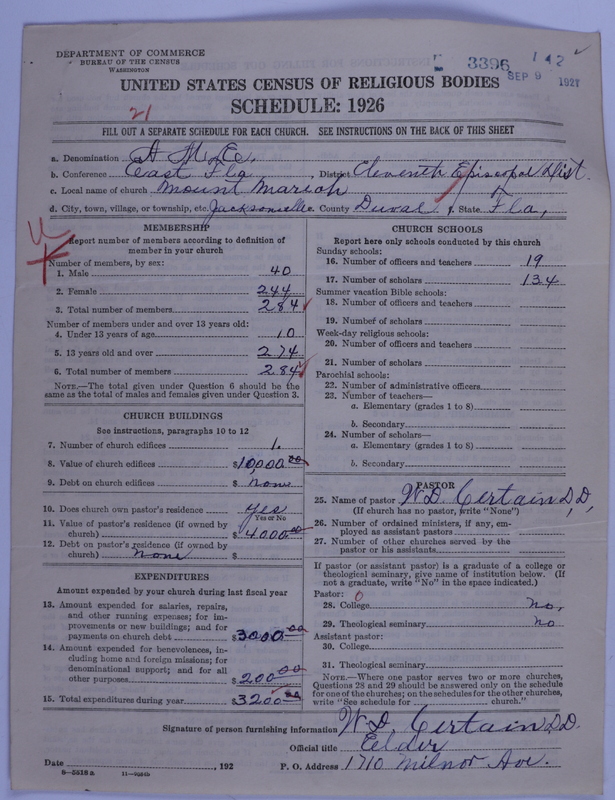 DEPARTMENT OF COMMERCE
BUREAU OF THE CENSUS
WASHINGTON
3396
142
SEP 9 1927
UNITED STATES CENSUS OF RELIGIOUS BODIES
SCHEDULE: 1926
21
FILL OUT A SEPARATE SCHEDULE FOR EACH CHURCH. SEE INSTRUCTIONS ON THE BACK OF THIS SHEET
a. Denomination A. M. E.
b. Conference East Fla, District Eleventh Episcopal Dist.
c. Local name of church Mount Mariah
d. City, town, village, or township, etc. Jacksonville e. County Duval f. State Fla,
MEMBERSHIP
Report number of members according to definition of member in your church
Number of members, by sex:
1. Male 40
2. Female 244
3. Total number of members 284
Number of members under and over 13 years old:
4. Under 13 years of age 10
5. 13 years old and over 274
6. Total number of members 284
NOTE.—The total given under Question 6 should be the same as the total of males and females given under Question 3.
CHURCH BUILDINGS
See instructions, paragraphs 10 to 12
7. Number of church edifices 1
8. Value of church edifices $10,000.00
9. Debt on church edifices $ none
10. Does church own pastor's residence yes
Yes or No
11. Value of pastor's residence (if owned by church) $4000.00
12. Debt on pastor's residence (if owned by church) none $
EXPENDITURES
Amount expended by your church during last fiscal year
13. Amount expended for salaries, repairs, and other running expenses; for improvements or new buildings; and for payments on church debt $3000.00
14. Amount expended for benevolences, including home and foreign missions; for denominational support; and for all other purposes $200.00
15. Total expenditures during year $3200.00
CHURCH SCHOOLS
Report here only schools conducted by this church
Sunday schools:
16. Number of officers and teachers 19
17. Number of scholars 134
Summer vacation Bible schools:
18. Number of officers and teachers
19. Number of scholars
Week-day religious schools:
20. Number of officers and teachers
21. Number of scholars
Parochial schools:
22. Number of administrative officers
23. Number of teachers—
a. Elementary (grades 1 to 8)
b. Secondary
24. Number of scholars—
a. Elementary (grades 1 to 8)
b. Secondary
PASTOR
25. Name of pastor W. D. Certain D, D,
(If church has no pastor, write "None")
26. Number of ordained ministers, if any, employed as assistant pastors
27. Number of other churches served by the pastor or his assistants
If pastor (or assistant pastor) is a graduate of a college or theological seminary, give name of institution below. (If not a graduate, write "No" in the space indicated.)
Pastor: 0
28. College no,
29. Theological seminary no
Assistant pastor:
30. College
31. Theological seminary
NOTE.—Where one pastor serves two or more churches, Questions 28 and 29 should be answered only on the schedule for one of the churches; on the schedules for the other churches, write "See schedule for ........ church."
Signature of person furnishing information W. D. Certain D. D.
Official title Eelder
Date , 192 P. O. Address 1710 Milnor Ave.
8-5518a 11-9284b